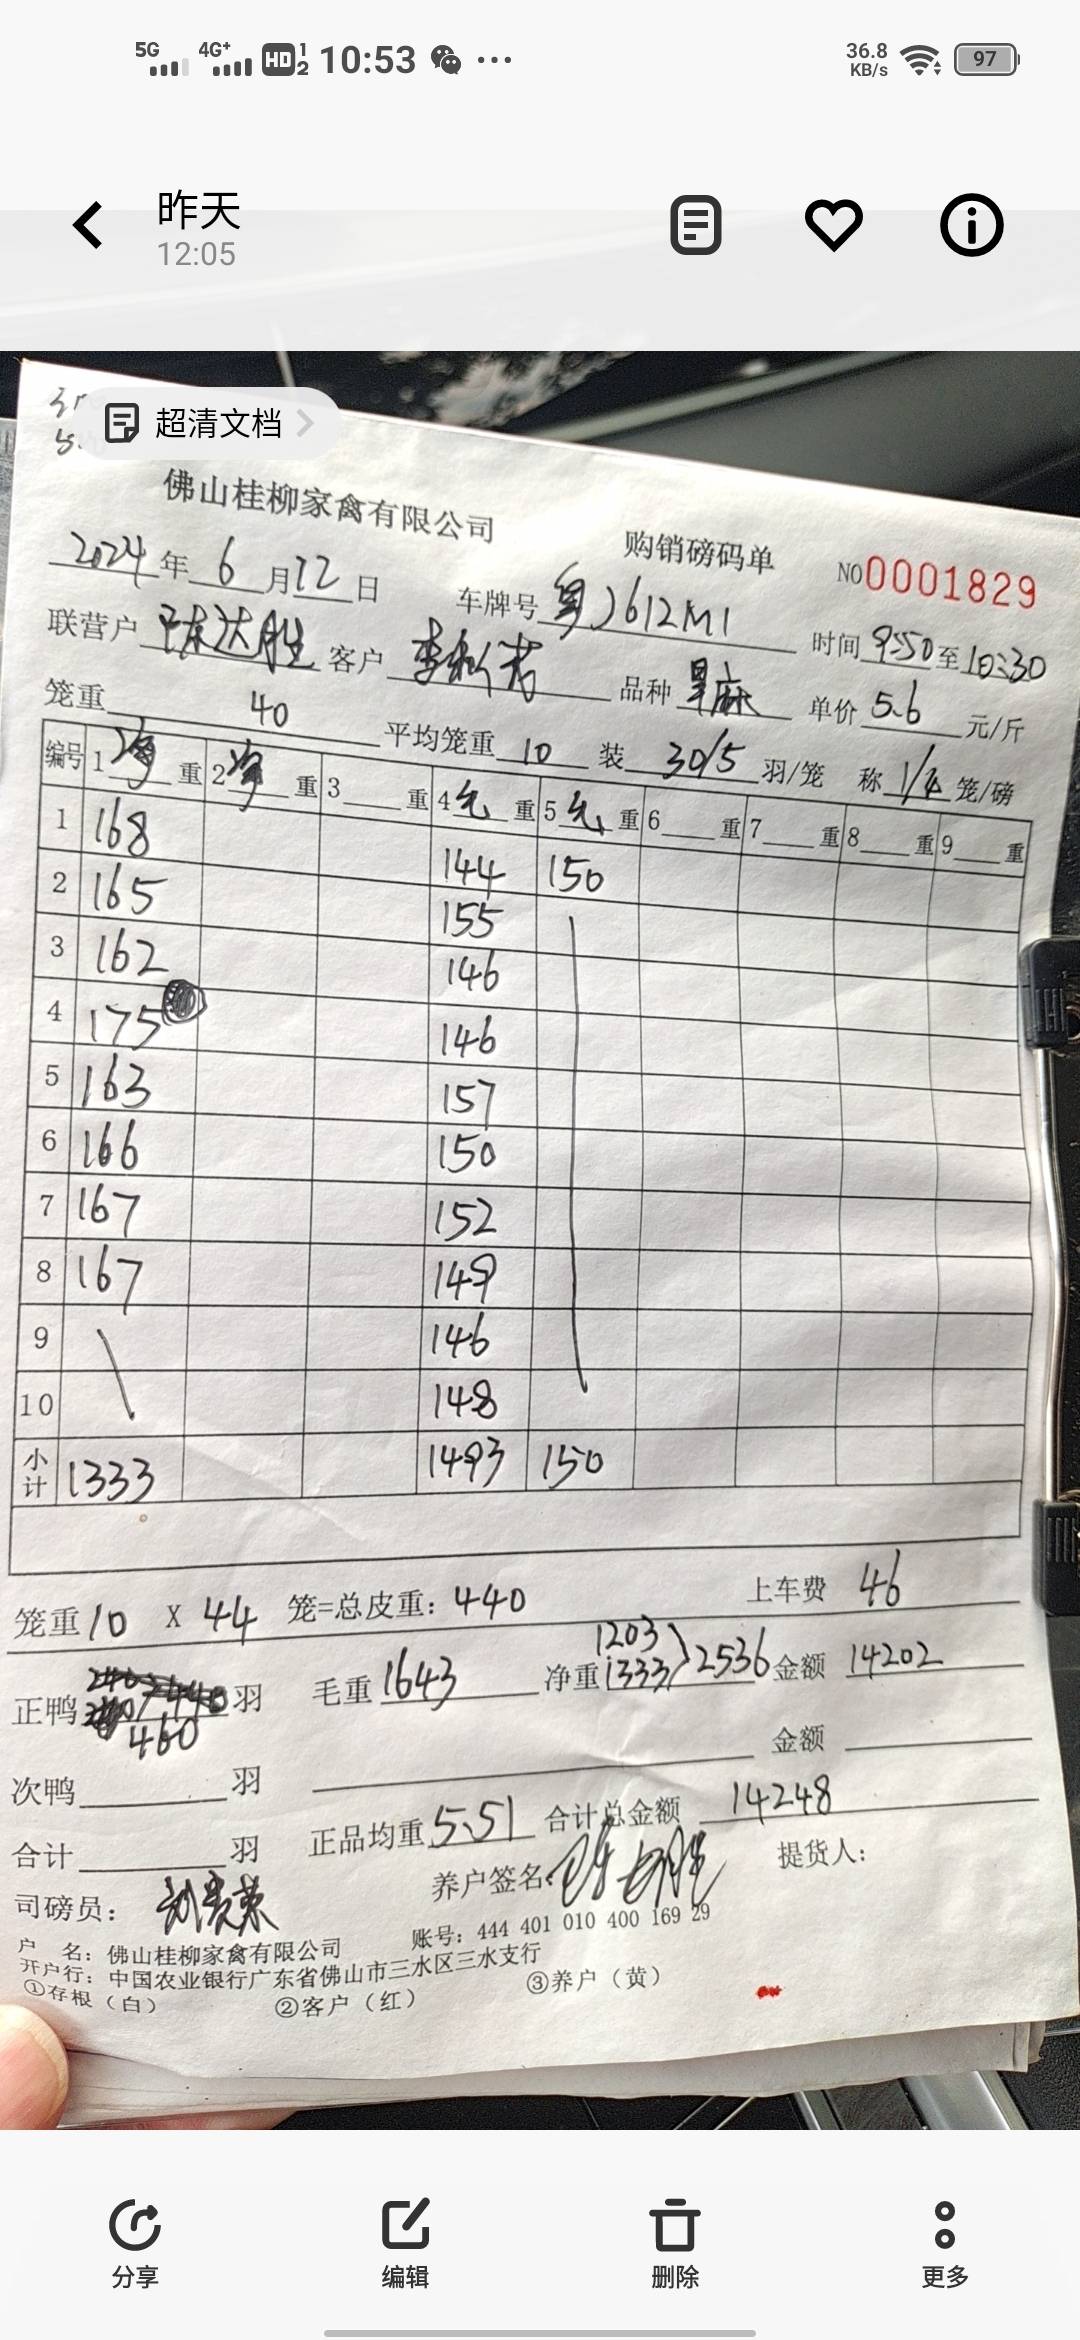 5G 4G+ HD 1 2 10:53 ... 36.8 KB/s 97
昨天
12:05
超清文档
佛山桂柳家禽有限公司 购销磅码单 NO 0001829
2024年 6 月 12 日 车牌号 粤J612M1 时间 9:50 至 10:30
联营户 陈达胜 客户 品种 旱麻 单价 5.6 元/斤
笼重 40 平均笼重 10 装 30/5 羽/笼 称 1/4 笼/磅
编号 1 净 重 2 净 重 3 重 4 毛 重 5 毛 重 6 重 7 重 8 重 9 重
1 168 144 150
2 165 155
3 162 146
4 175 146
5 163 157
6 166 150
7 167 152
8 167 149
9 146
10 148
小计 1333 1493 150
笼重 10 X 44 笼=总皮重: 440 上车费 46
正鸭 460 羽 毛重 1643 净重 1203 1333 2536 金额 14202
次鸭 羽 金额
合计 羽 正品均重 5.51 合计总金额 14248
司磅员: 养户签名: 陈达胜 提货人:
户 名: 佛山桂柳家禽有限公司 账号: 444 401 010 400 169 29
开户行: 中国农业银行广东省佛山市三水区三水支行
①存根(白) ②客户(红) ③养户(黄)
分享 编辑 删除 更多